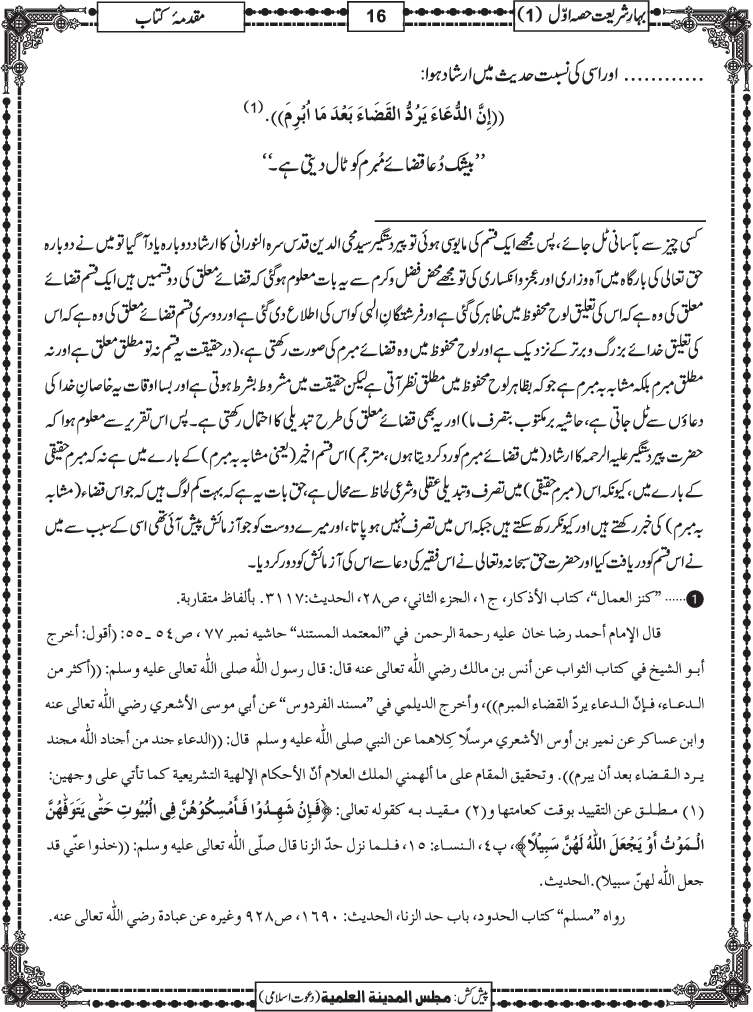 بہار شریعت حصہ اوّل (1)
16
مقدمۂ کتاب
............ اور اسی کی نسبت حدیث میں ارشاد ہوا:
((إِنَّ الدُّعَاءَ يَرُدُّ القَضَاءَ بَعْدَ مَا أُبْرِمَ)). (1)
’’بیشک دُعا قضائے مُبرم کو ٹال دیتی ہے۔‘‘
کسی چیز سے بآسانی ٹل جائے، پس مجھے ایک قسم کی مایوسی ہوئی تو پیر دستگیر سید محی الدین قدس سرہ النورانی کا ارشاد دوبارہ یاد آگیا تو میں نے دوبارہ
حق تعالی کی بارگاہ میں آہ وزاری اور عجز و انکساری کی تو مجھے محض فضل و کرم سے یہ بات معلوم ہوگئی کہ قضائے معلق کی دو قسمیں ہیں ایک قسم قضائے
معلق کی وہ ہے کہ اس کی تعلیق لوح محفوظ میں ظاہر کی گئی ہے اور فرشتگانِ الہی کو اس کی اطلاع دی گئی ہے اور دوسری قسم قضائے معلق کی وہ ہے کہ اس
کی تعلیق خدائے بزرگ و برتر کے نزدیک ہے اور لوح محفوظ میں وہ قضائے مبرم کی صورت رکھتی ہے، (در حقیقت یہ قسم نہ تو مطلق معلق ہے اور نہ
مطلق مبرم بلکہ مشابہ بہ مبرم ہے جو کہ بظاہر لوح محفوظ میں مطلق نظر آتی ہے لیکن حقیقت میں مشروط بشرط ہوتی ہے اور بسا اوقات یہ خاصانِ خدا کی
دعاؤں سے ٹل جاتی ہے، حاشیہ بر مکتوب بتصرف ما) اور یہ بھی قضائے معلق کی طرح تبدیلی کا احتمال رکھتی ہے۔ پس اس تقریر سے معلوم ہوا کہ
حضرت پیر دستگیر علیہ الرحمہ کا ارشاد (میں قضائے مبرم کو رد کر دیتا ہوں، مترجم) اس قسم اخیر (یعنی مشابہ بہ مبرم) کے بارے میں ہے نہ کہ مبرم حقیقی
کے بارے میں، کیونکہ اس (مبرم حقیقی) میں تصرف و تبدیلی عقلی و شرعی لحاظ سے محال ہے، حق بات یہ ہے کہ بہت کم لوگ ہیں کہ جو اس قضاء (مشابہ
بہ مبرم) کی خبر رکھتے ہیں اور کیونکر رکھ سکتے ہیں جبکہ اس میں تصرف نہیں ہو پاتا، اور میرے دوست کو جو آزمائش پیش آئی تھی اسی کے سبب سے میں
نے اس قسم کو دریافت کیا اور حضرت حق سبحانہ و تعالی نے اس فقیر کی دعا سے اس کی آزمائش کو دور کر دیا۔
1 ...... ”كنز العمال“، كتاب الأذكار، ج١، الجزء الثاني، ص٢٨، الحديث: ٣١١٧. بألفاظ متقاربة.
قال الإمام أحمد رضا خان عليه رحمة الرحمن في ”المعتمد المستند“ حاشيه نمبر ٧٧، ص٥٤ـ٥٥: (أقول: أخرج
أبو الشيخ في كتاب الثواب عن أنس بن مالك رضي الله تعالى عنه قال: قال رسول الله صلى الله تعالى عليه وسلم: ((أكثر من
الدعاء، فإنّ الدعاء يردّ القضاء المبرم))، وأخرج الديلمي في ”مسند الفردوس“ عن أبي موسى الأشعري رضي الله تعالى عنه
وابن عساكر عن نمير بن أوس الأشعري مرسلًا كِلاهما عن النبي صلى الله تعالى عليه وسلم قال: ((الدعاء جند من أجناد الله مجند
يرد القضاء بعد أن يبرم)). وتحقيق المقام على ما ألهمني الملك العلام أنّ الأحكام الإلهية التشريعية كما تأتي على وجهين:
(١) مطلق عن التقييد بوقت كعامتها و(٢) مقيد به كقوله تعالى: ﴿فَإِنْ شَهِدُوْا فَأَمْسِكُوْهُنَّ فِى الْبُيُوتِ حَتّٰى يَتَوَفّٰهُنَّ
الْمَوْتُ أَوْ يَجْعَلَ اللّٰهُ لَهُنَّ سَبِيْلًا﴾، پ٤، النساء: ١٥، فلما نزل حدّ الزنا قال صلّى الله تعالى عليه وسلم: ((خذوا عنّي قد
جعل الله لهنّ سبيلا)).الحديث.
رواه ”مسلم“ كتاب الحدود، باب حد الزنا، الحديث: ١٦٩٠، ص٩٢٨ وغيره عن عبادة رضي الله تعالى عنه.
پیش کش: مجلس المدینة العلمیة (دعوت اسلامی)